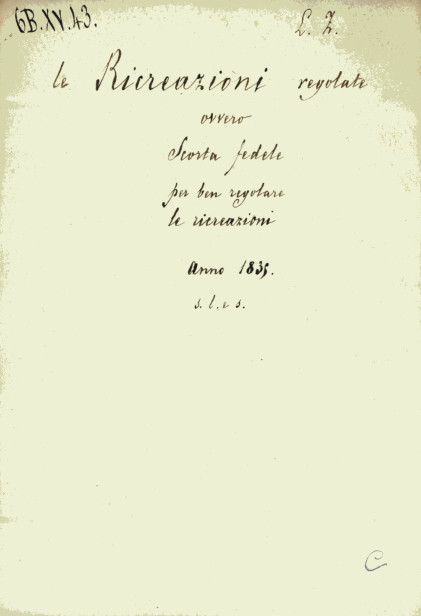 6B.XV.43.
L. Z.
le Ricreazioni regolate
ovvero
Scorta fedele
per ben regolare
le ricreazioni
Anno 1835.
s. l. e s.
C